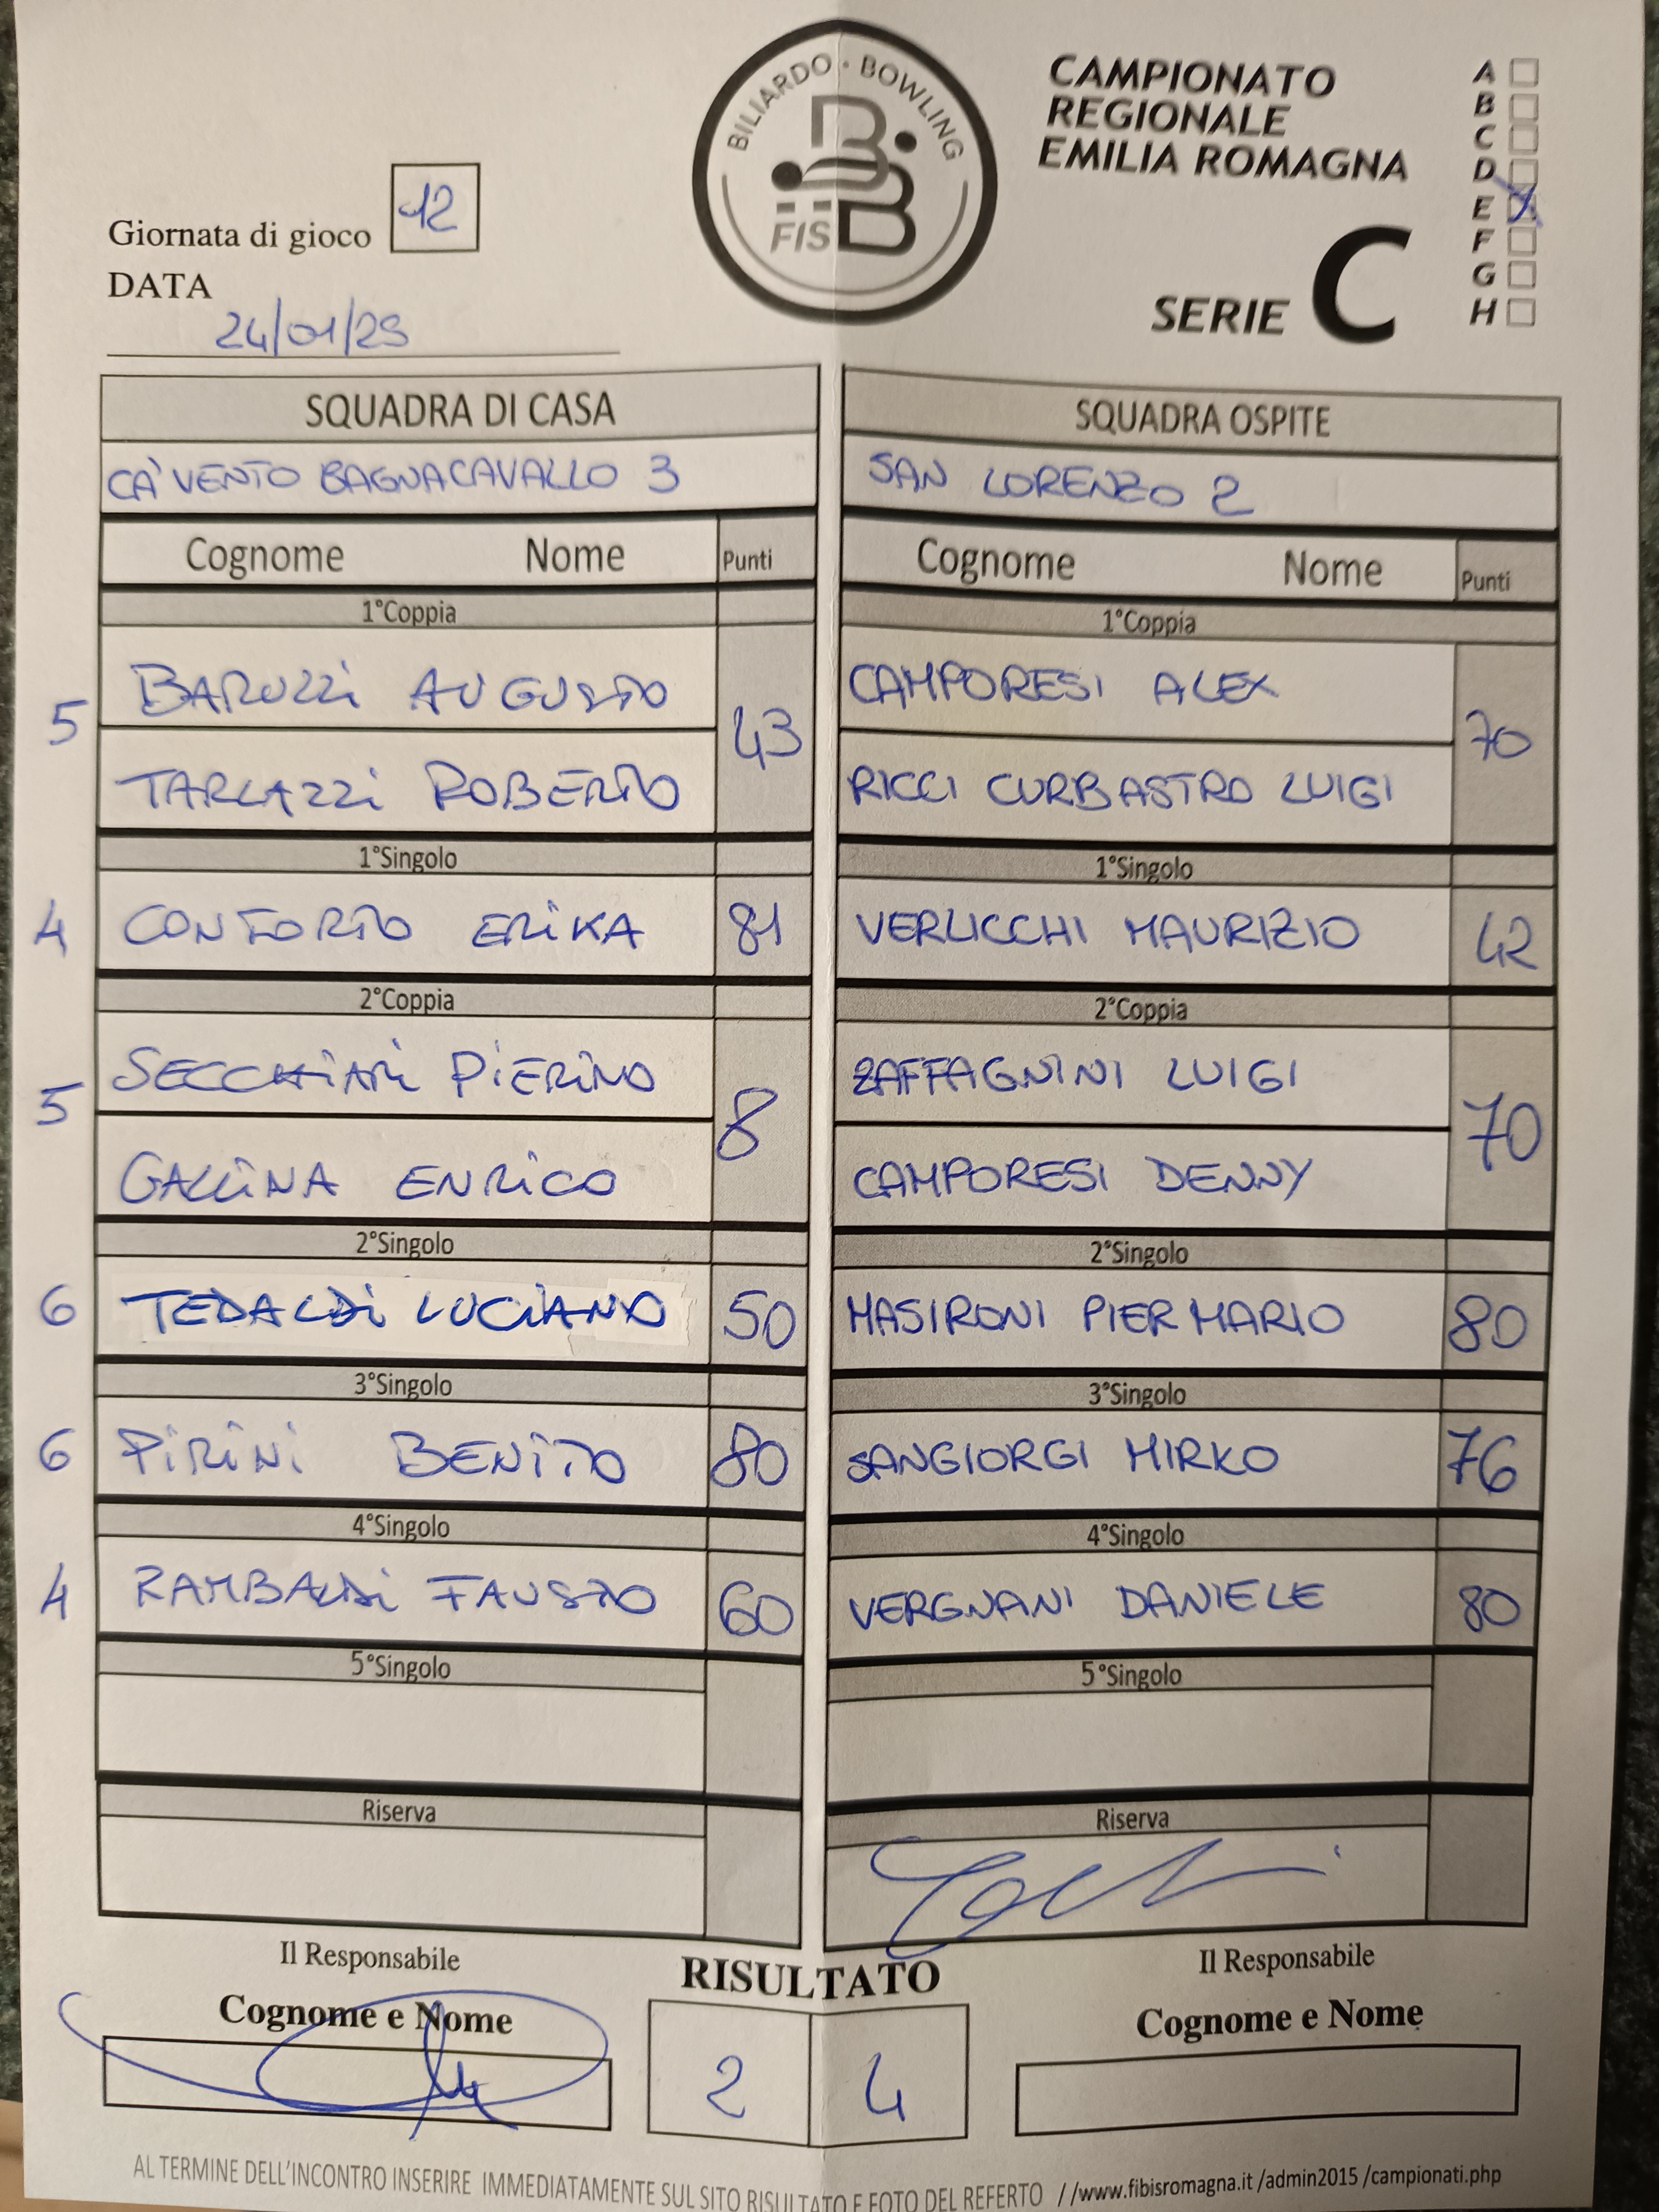 BILIARDO · BOWLING
FISBB
CAMPIONATO
REGIONALE
EMILIA ROMAGNA
SERIE C
A
B
C
D
E X
F
G
H
Giornata di gioco 12
DATA
24/01/25
SQUADRA DI CASA
CA' VENTO BAGNACAVALLO 3
Cognome Nome Punti
1°Coppia
BARUZZI AUGUSTO
5 43
TARLAZZI ROBERTO
1°Singolo
4 CONFORTO ERIKA 81
2°Coppia
SECCHIARI PIERINO
5 8
GALLINA ENRICO
2°Singolo
6 TEDALDI LUCIANO 50
3°Singolo
6 PIRINI BENITO 80
4°Singolo
4 RAMBALDI FAUSTO 60
5°Singolo
Riserva
SQUADRA OSPITE
SAN LORENZO 2
Cognome Nome Punti
1°Coppia
CAMPORESI ALEX
70
RICCI CURBASTRO LUIGI
1°Singolo
VERLICCHI MAURIZIO 42
2°Coppia
ZAFFAGNINI LUIGI
70
CAMPORESI DENNY
2°Singolo
MASIRONI PIER MARIO 80
3°Singolo
SANGIORGI MIRKO 76
4°Singolo
VERGNANI DANIELE 80
5°Singolo
Riserva
Il Responsabile
Cognome e Nome
RISULTATO
2 4
Il Responsabile
Cognome e Nome
AL TERMINE DELL'INCONTRO INSERIRE IMMEDIATAMENTE SUL SITO RISULTATO E FOTO DEL REFERTO //www.fibisromagna.it /admin2015 /campionati.php